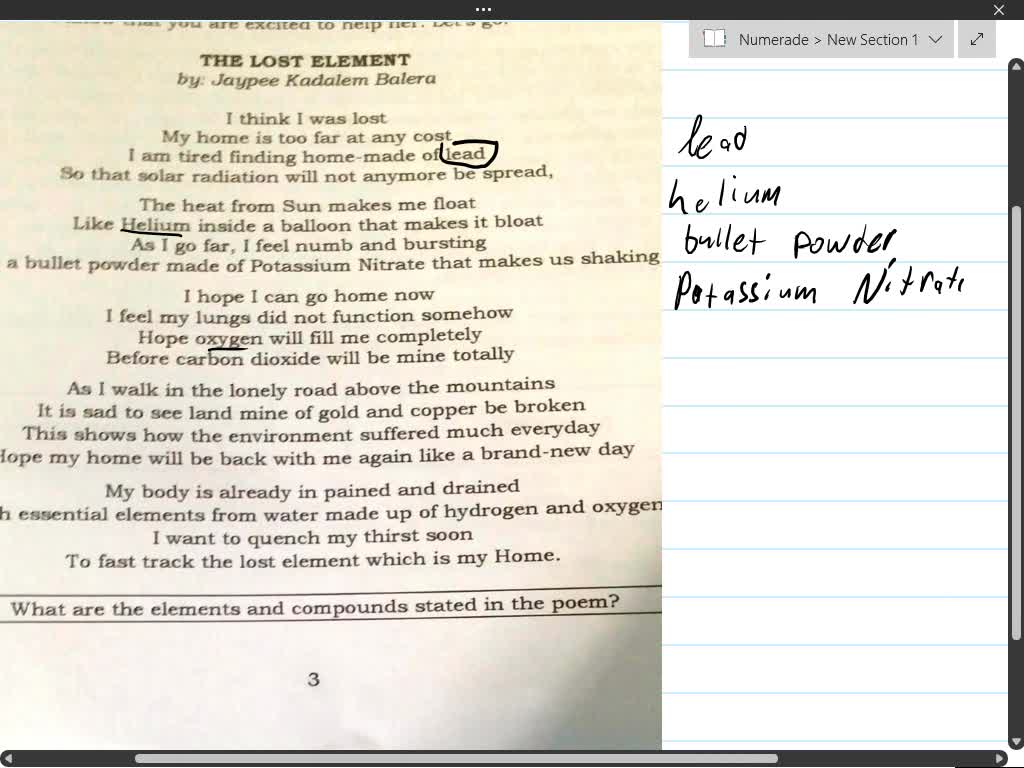 Numerade > New Section 1
that you are excited to help her. Let's go!
THE LOST ELEMENT
by: Jaypee Kadalem Balera
I think I was lost
My home is too far at any cost
I am tired finding home-made of lead
So that solar radiation will not anymore be spread,
The heat from Sun makes me float
Like Helium inside a balloon that makes it bloat
As I go far, I feel numb and bursting
a bullet powder made of Potassium Nitrate that makes us shaking
I hope I can go home now
I feel my lungs did not function somehow
Hope oxygen will fill me completely
Before carbon dioxide will be mine totally
As I walk in the lonely road above the mountains
It is sad to see land mine of gold and copper be broken
This shows how the environment suffered much everyday
Hope my home will be back with me again like a brand-new day
My body is already in pained and drained
h essential elements from water made up of hydrogen and oxygen
I want to quench my thirst soon
To fast track the lost element which is my Home.
What are the elements and compounds stated in the poem?
3
lead
helium
bullet powder
Potassium Nitrate